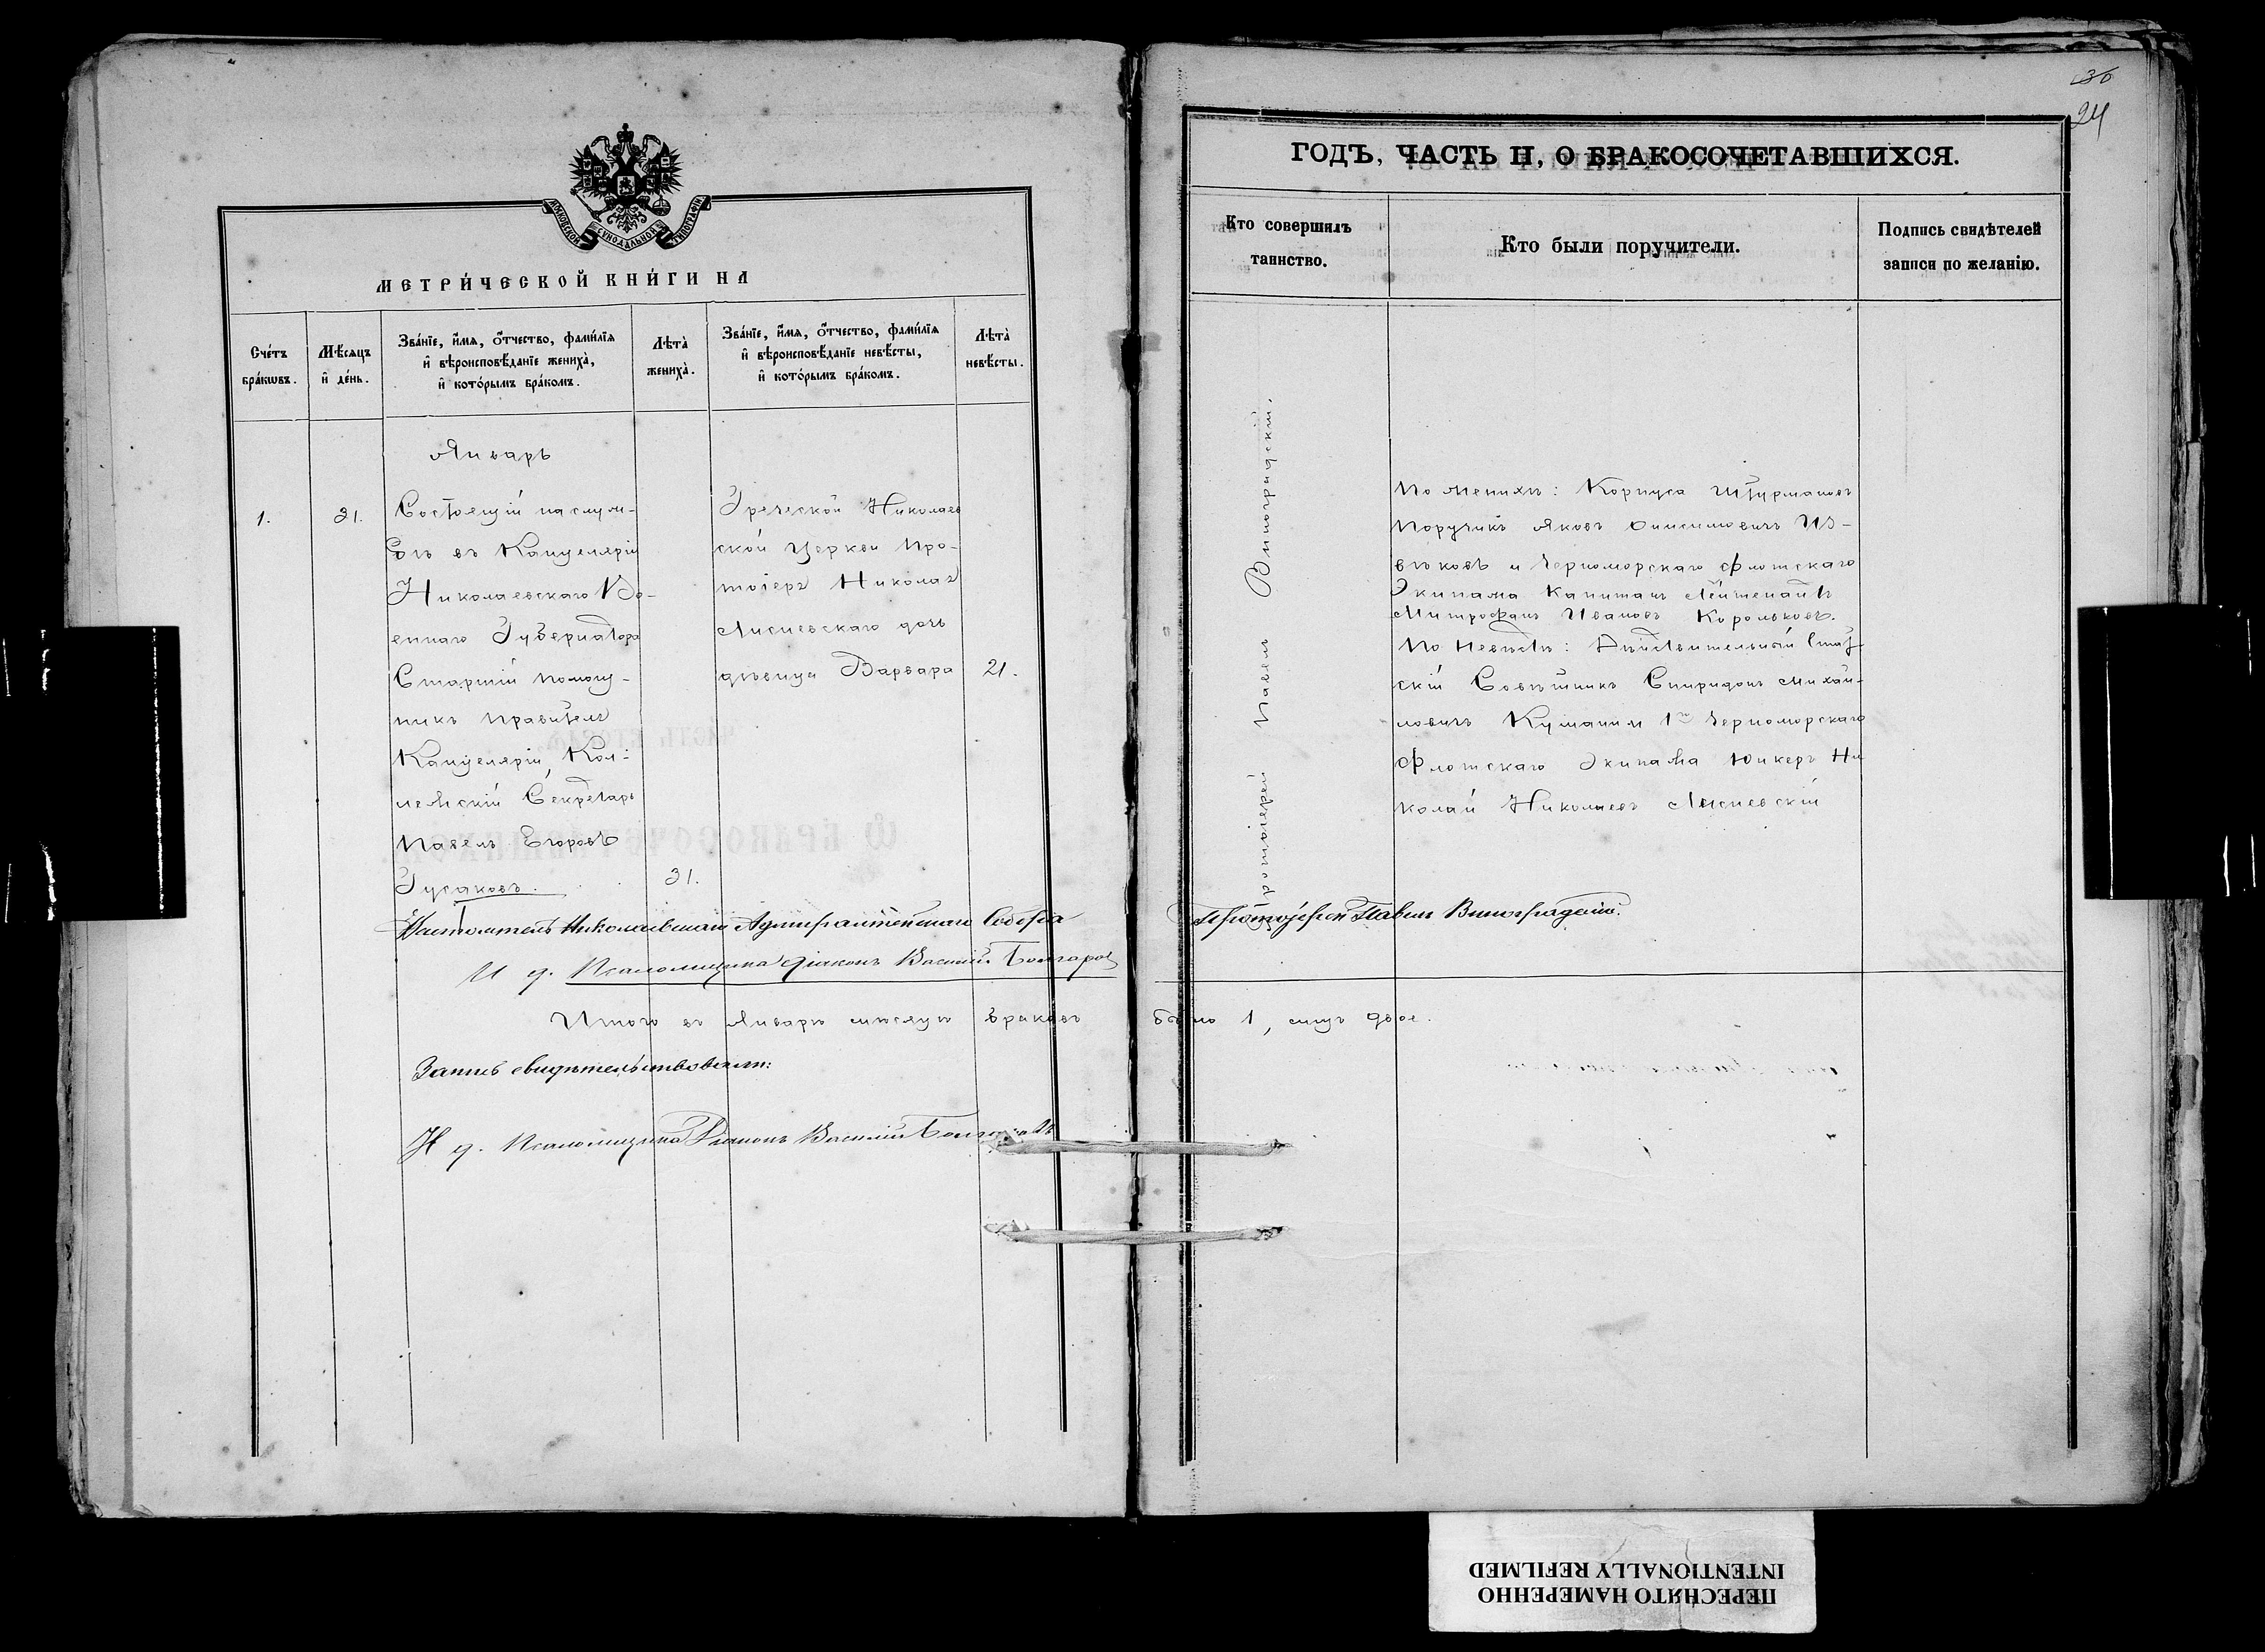 30
24
МОСКОВСКОЙ СѴНОДАЛЬНОЙ ТИПОГРАФІИ
МЕТРИ́ЧЕСКОЙ КНИ́ГИ НА
Сче́тъ бра́кѡвъ.
Мѣ́сяцъ и҆ де́нь.
Зва́нїе, и҆́мя, ѻ҆́тчество, фами́лїя
и҆ вѣроисповѣ́данїе жениха̀,
и҆ кото́рымъ бра́комъ.
Лѣта̀ жениха̀.
Зва́нїе, и҆́мя, ѻ҆́тчество, фами́лїя
и҆ вѣроисповѣ́данїе невѣ́сты,
и҆ кото́рымъ бра́комъ.
Лѣта̀ невѣ́сты.
Январь
1.
31.
Состоящій на служ-
бѣ въ Канцеляріи
Николаевскаго Во-
еннаго Губернатора
Старшій помощ-
никъ Правителя
Канцеляріи, Кол-
лежскій Секретарь
Павелъ Егоровъ
Гусаковъ.
31.
Греческой Николаев
ской Церкви Про-
тоіерея Николая
Лисневскаго дочь
дѣвица Варвара
21.
Настоятель Николаевскаго Адмиралтейскаго Собора
И д. Псаломщика діаконъ Василій Болгаровъ
Итого въ Январѣ мѣсяцѣ браковъ
Запись свидѣтельствовали:
И д. Псаломщика Діаконъ Василій
ГОДЪ, ЧАСТЬ II, О БРАКОСОЧЕТАВШИХСЯ.
Кто совершилъ
таинство.
Кто были поручители.
Подпись свидѣтелей
записи по желанію.
Протоіерей Павелъ Виноградскій.
По женихѣ: Корпуса Штурмановъ
Поручикъ Яковъ Онисимовичъ Из-
вѣковъ и Черноморскаго флотскаго
Экипажа Капитанъ Лейтенантъ
Митрофанъ Ивановъ Корольковъ.
По Невѣстѣ: Дѣйствительный Стат-
скій Совѣтникъ Спиридонъ Михай-
ловичъ и 1го Черноморскаго
Флотскаго Экипажа Юнкеръ Ни
колай Николаевъ Лисневскій
Протоіерей Павелъ Виноградскій.
было 1, лицъ двое.
ПЕРЕСНЯТО НАМЕРЕННО
INTENTIONALLY REFILMED